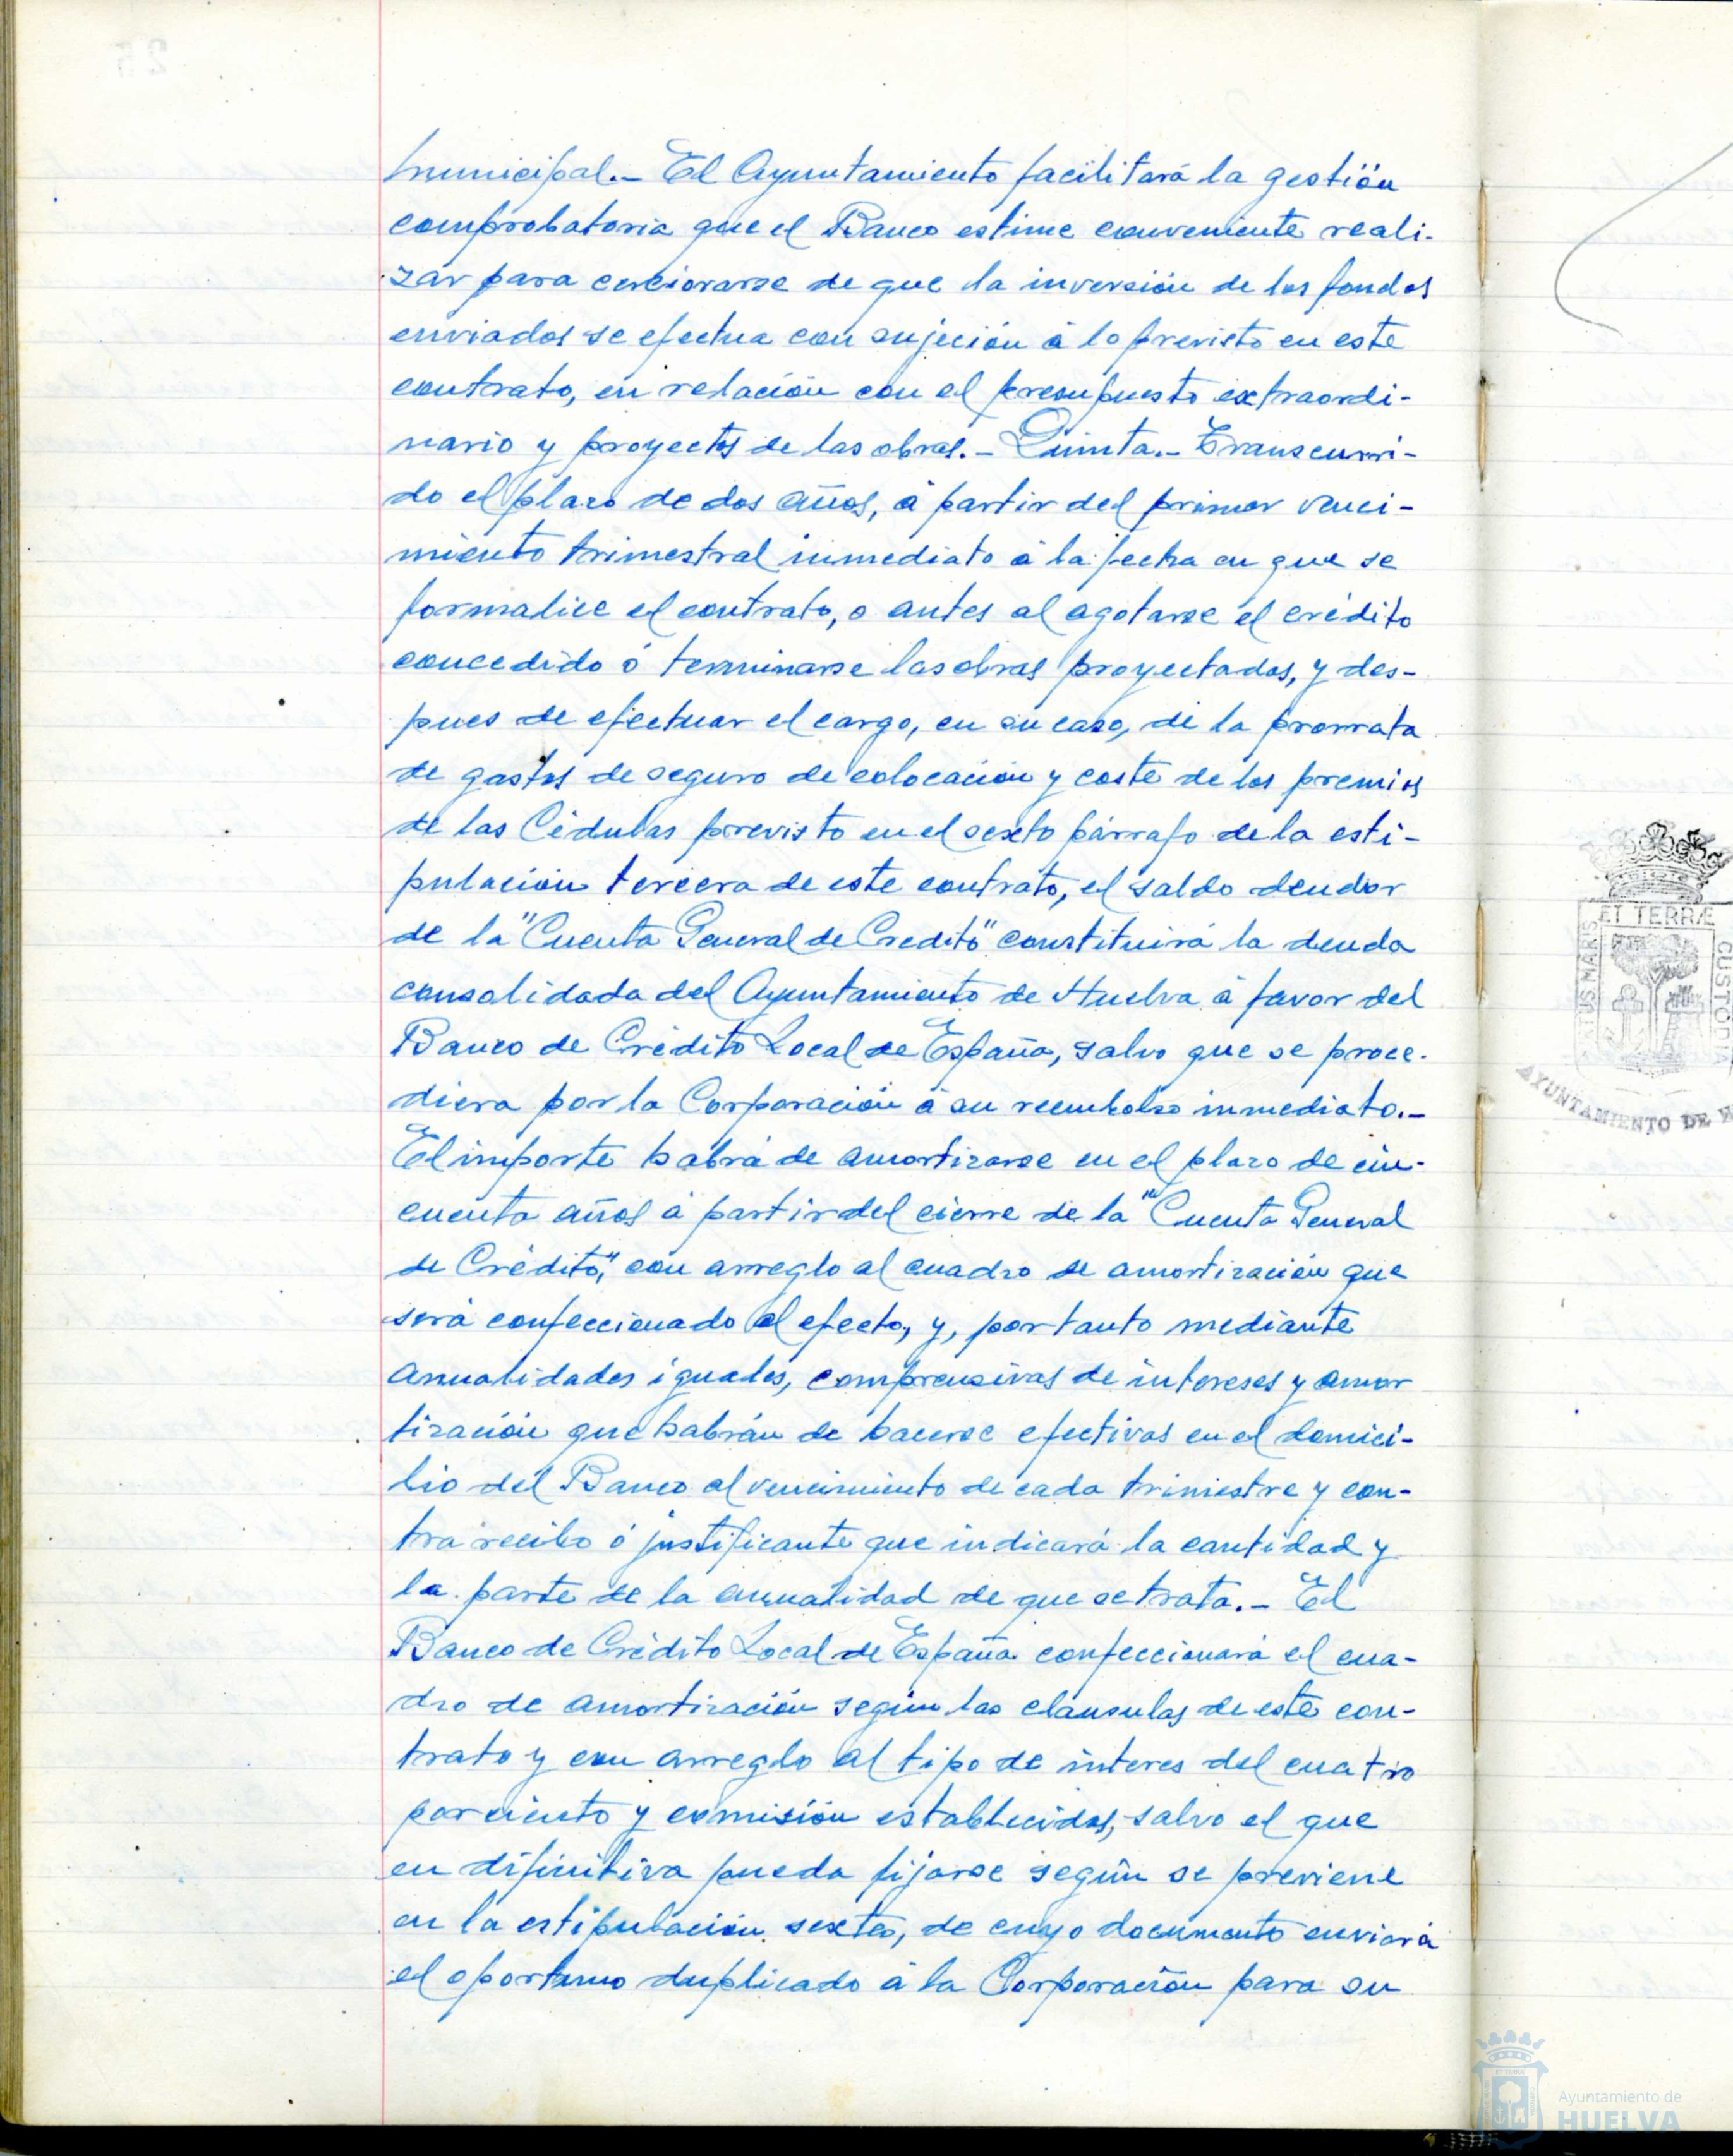 municipal.- El Ayuntamiento facilitará la gestión
comprobatoria que el Banco estime conveniente reali-
zar para cerciorarse de que la inversión de los fondos
enviados se efectua con sujeción á lo previsto en este
contrato, en relación con el presupuesto extraordi-
nario y proyectos de las obras.- Quinta.- Transcurri-
do el plazo de dos años, á partir del primer venci-
miento trimestral inmediato á la fecha en que se
formalice el contrato, o antes al agotarse el crédito
concedido ó terminarse las obras proyectadas, y des-
pues de efectuar el cargo, en su caso, de la prorrata
de gastos de seguro de colocación y coste de los premios
de las Cédulas previsto en el sexto párrafo de la esti-
pulación tercera de este contrato, el saldo deudor
de la "Cuenta General de Credito" constituirá la deuda
consolidada del Ayuntamiento de Huelva á favor del
Banco de Crédito Local de España, salvo que se proce-
diera por la Corporación á su reembolso inmediato.-
El importe habrá de amortizarse en el plazo de cin-
cuenta años á partir del cierre de la "Cuenta General
de Crédito", con arreglo al cuadro de amortización que
será confeccionado al efecto, y, por tanto mediante
anualidades iguales, comprensivas de intereses y amor
tización que habrán de hacerse efectivas en el domici-
lio del Banco al vencimiento de cada trimestre y con-
tra recibo ó justificante que indicará la cantidad y
la parte de la anualidad de que se trata.- El
Banco de Crédito Local de España confeccionará el cua-
dro de amortización según las clausulas de este con-
trato y con arreglo al tipo de interes del cuatro
por ciento y comisión establecidos, salvo el que
en difinitiva pueda fijarse según se previene
en la estipulación sexta, de cuyo documento enviará
el oportuno duplicado á la Corporación para su
ET TERRÆ
CUSTODIA
AYUNTAMIENTO DE
Ayuntamiento de
HUELVA